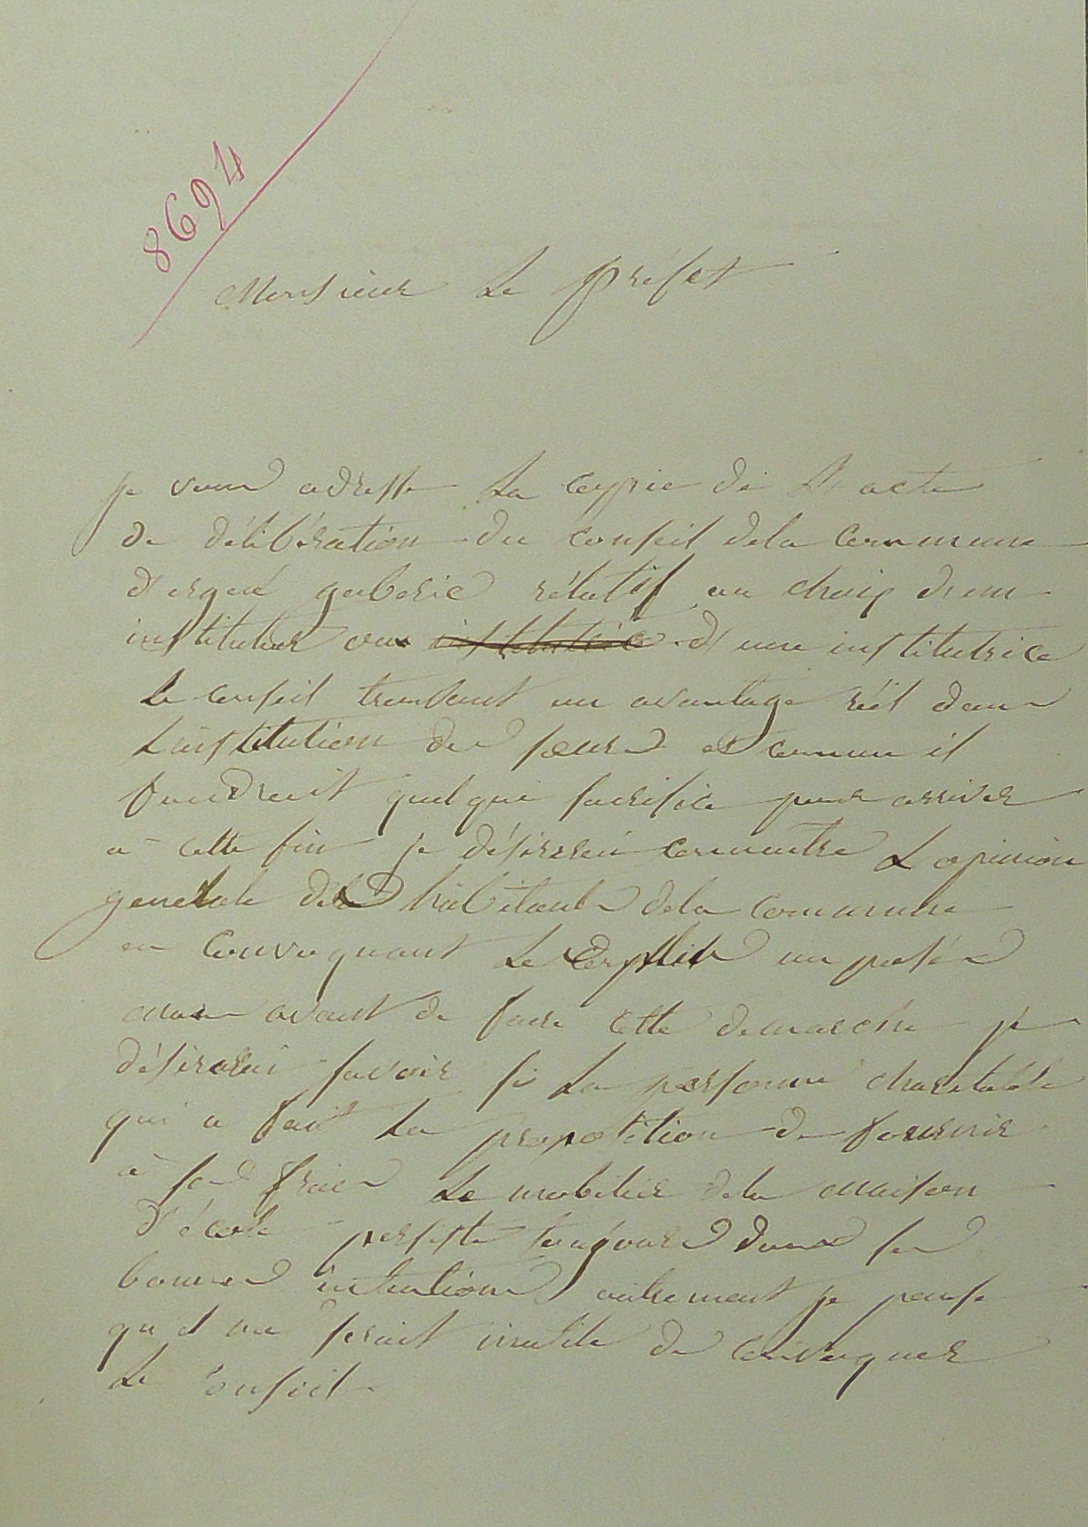 8694
Monsieur Le préfet
je vous adresse La copie de L'acte
de délibération du conseil dela Commune
d'ergué gaberic rélatif au choix d'un
instituteur ou institutrice d'une institutrice
Le conseil trouvant un avantage réél dans
L'institution des sœurs et comme il
faudrait quelque sacrifice pour arriver
a cette fin je désirerai connaitre L'opinion
generale des habitants dela Commune
en convoquant Les plus imposés
mais avant de faire cette demarche je
désirerai savoir si La personne charitable
qui a fait La proposition de fournir
à ses frais Le mobilier dela maison
d'école persiste toujours dans ses
bonnes intentions autrement je pense
qu'il me serait inutile de convoquer
Le conseil.